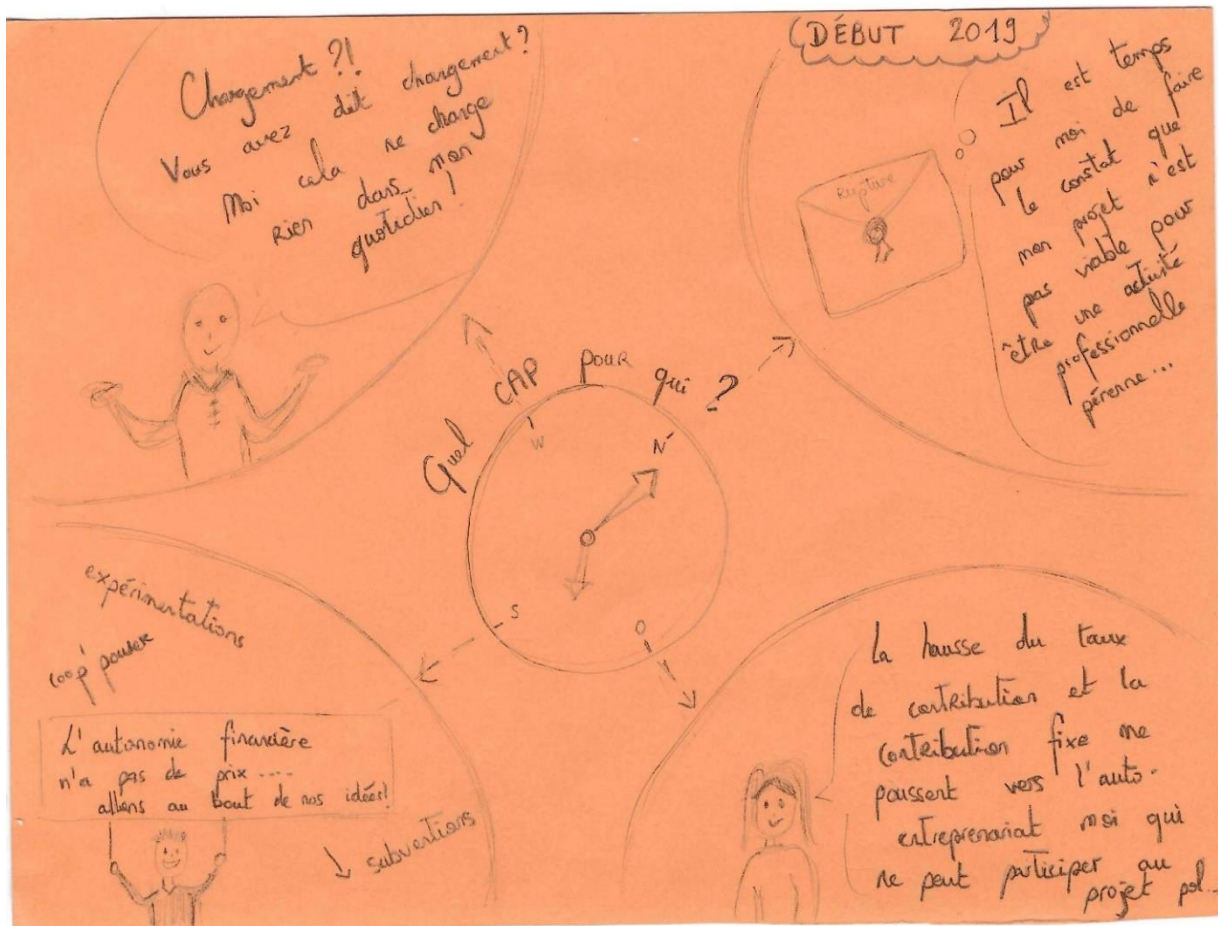 Changement ?!
Vous avez dit changement?
Moi cela ne change
rien dans mon
quotidien !
DÉBUT 2019
Rupture
Il est temps
pour moi de faire
le constat que
mon projet n'est
pas viable pour
être une activité
professionnelle
pérenne...
Quel CAP pour qui ?
W
N
S
O
expérimentations
coop' pouver
L'autonomie financière
n'a pas de prix ....
allons au bout de nos idées!
↘ subventions
La hausse du taux
de contribution et la
contribution fixe me
poussent vers l'auto-
entreprenariat moi qui
ne peut participer au
projet pol...